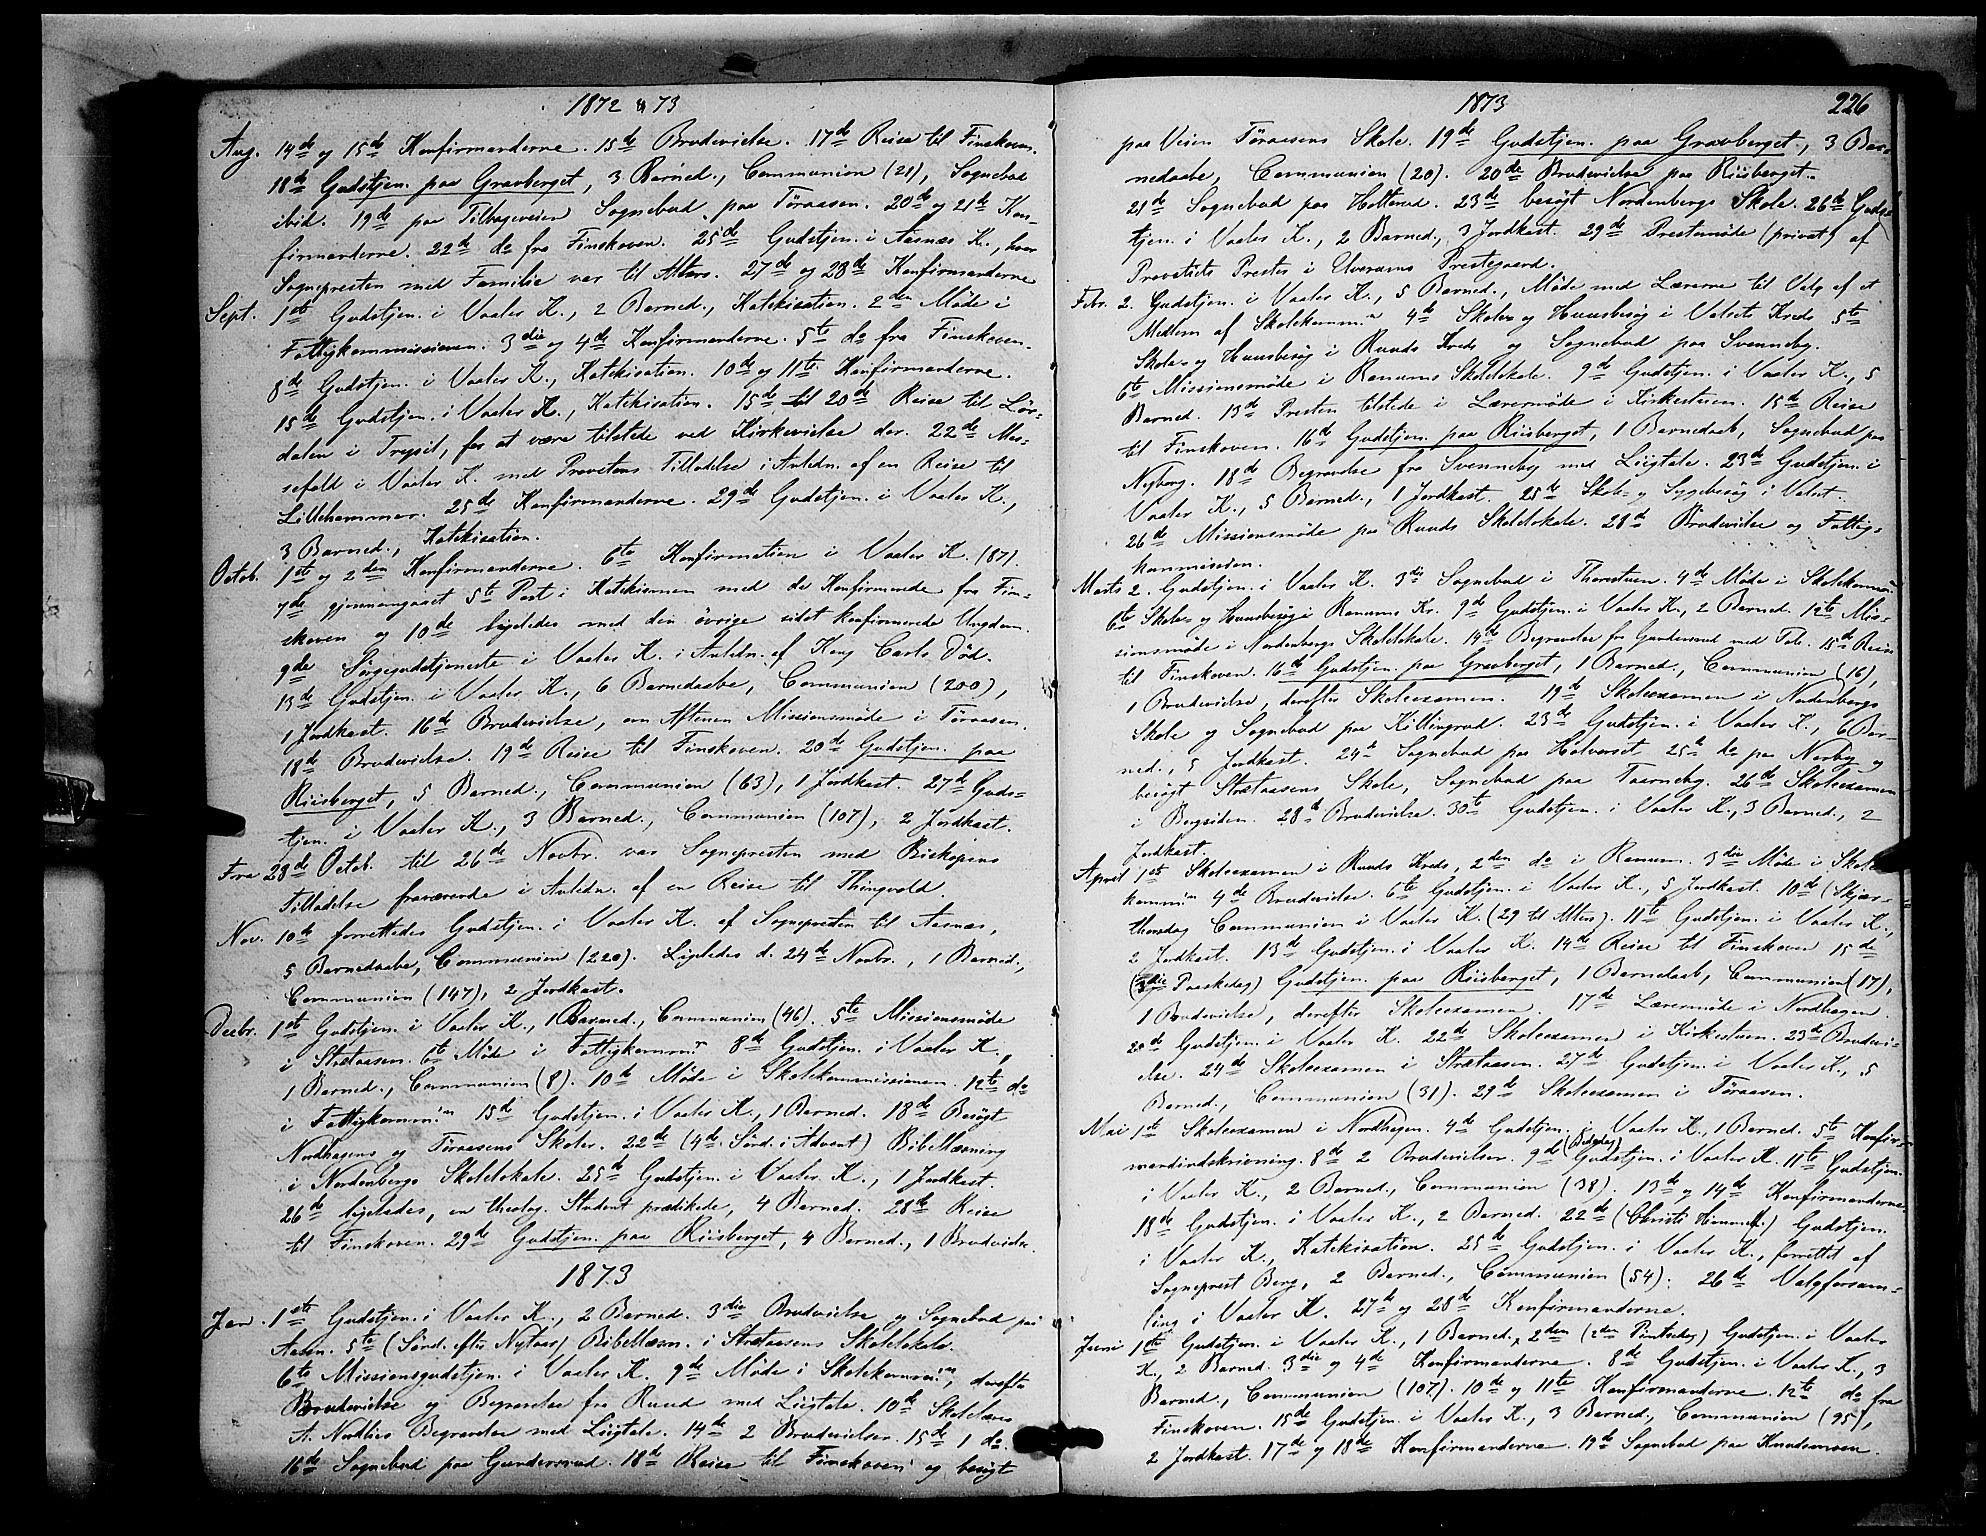 1872 & 73
Aug. 14de og 15de Konfirmanderne. 15de Brudevielse. 17de Reise til Finskoven.
18de Gudstjen. paa Gravberget, 3 Barned., Communion (21), Sognebud
ibid. 19de paa Tilbageveien Sognebud paa Töraasen. 20de og 21de Kon-
firmanderne. 22de do fra Finskoven. 25de Gudstjen. i Aasnæs K., hvor
Sognepresten med Familie var til Alters. 27de og 28de Konfirmanderne
Sept. 1ste Gudstjen. i Vaaler K., 2 Barned., Katekisation. 2den Möde i
Fattigkommissionen. 3die og 4de Konfirmanderne. 5te do fra Finskoven.
8de Gudstjen. i Vaaler K., Katekisation. 10de og 11te Konfirmanderne.
15de Gudstjen. i Vaaler K., Katekisation. 15de til 20de Reise til Lör-
dalen i Trysil, for at være tilstede ved Kirkevielse der. 22de Mes-
sefald i Vaaler K. med Provstens Tilladelse i Anledn. af en Reise til
Lillehammer. 25de Konfirmanderne. 29de Gudstjen. i Vaaler K.,
3 Barned., Katekisation.
Octob. 1ste og 2den Konfirmanderne. 6te Konfirmation i Vaaler K. (87).
7de gjennemgaaet 5te Part i Katekismen med de Konfirmerede fra Fin-
skoven og 10de ligeledes med den övrige sidst konfirmerede Ungdom.
9de Sörgegudstjeneste i Vaaler K. i Anledn. af Kong Carls Död.
13de Gudstjen. i Vaaler K., 6 Barnedaabe, Communion (200),
1 Jordkast. 16de Brudevielse, om Aftenen Missionsmöde i Töraasen.
18de Brudevielse. 19de Reise til Finskoven. 20de Gudstjen. paa
Riisberget, 5 Barned., Communion (63), 1 Jordkast. 27de Guds-
tjen. i Vaaler K., 3 Barned., Communion (107), 2 Jordkast.
Fra 28de Octob. til 26de Novbr. var Sognepresten med Biskopens
Tilladelse fraværende i Anledn. af en Reise til Thingvold.
Nov. 10de forrettedes Gudstjen. i Vaaler K. af Sognepresten til Aasnæs,
5 Barnedaabe, Communion (220). Ligeledes d. 24de Novbr., 1 Barned.,
Communion (147), 2 Jordkast.
Decbr. 1ste Gudstjen. i Vaaler K., 1 Barned., Communion (46). 5te Missionsmöde
i Strætaasen. 6te Möde i Fattigkomm. 8de Gudstjen. i Vaaler K.,
1 Barned., Communion (8). 10de Möde i Skolekommissionen. 12te do
i Fattigkomm. 15de Gudstjen. i Vaaler K., 1 Barned. 18de Besögt
Nordhagens og Töraasens Skoler. 22de (4de Sönd. i Advent) Bibellæsning
i Nordenbergs Skolelokale. 25de Gudstjen. i Vaaler K., 1 Jordkast.
26de ligeledes, en theolog. Student prædikede, 4 Barned. 28de Reise
til Finskoven. 29de Gudstjen. paa Riisberget, 4 Barned., 1 Brudevielse.
1873
Jan. 1ste Gudstjen. i Vaaler K., 2 Barned. 3die Brudevielse og Sognebud paa
Aasen. 5te (Sönd. efter Nytaar) Bibellæsn. i Strætaasens Skolelokale.
6te Missionsgudstjen. i Vaaler K. 9de Möde i Skolekomm., derefter
Brudevielse og Begravelse fra Ruud med Liigtale. 10de Skolelærer
A. Nordlies Begravelse med Liigtale. 14de 2 Brudevielser. 15de 1 do.
16de Sognebud paa Gundersrud. 18de Reise til Finskoven og besögt
1873
226
paa Veien Töraasens Skole. 19de Gudstjen. paa Gravberget, 3 Bar-
nedaabe, Communion (20). 20de Brudevielse paa Riisberget.
21de Sognebud paa Holterud. 23de besögt Nordenbergs Skole. 26de Guds-
tjen. i Vaaler K., 2 Barned., 3 Jordkast. 29de Prestemöde (privat) af
Provstiets Prester i Elverums Prestegaard.
Febr. 2. Gudstjen. i Vaaler K., 5 Barned., Möde med Lærerne til Valg af et
Medlem af Skolekomm. 4de Skole- og Huusbesög i Valset Kreds 5te
Skole- og Huusbesög i Ruuds Kreds og Sognebud paa Svenneby.
6te Missionsmöde i Ranums Skolelokale. 9de Gudstjen. i Vaaler K., 5
Barned. 13de Presten tilstede i Lærermöde i Kirkestuen. 15de Reise
til Finskoven. 16de Gudstjen. paa Riisberget, 1 Barnedaab, Sognebud paa
Nyborg. 18de Begravelse fra Svenneby med Liigtale. 23de Gudstjen. i
Vaaler K., 5 Barned., 1 Jordkast. 25de Skole- og Sygebesög i Valset.
26de Missionsmöde paa Ruuds Skolelokale. 28de Brudevielse og Fattig-
kommission.
Marts 2. Gudstjen. i Vaaler K. 3die Sognebud i Thorestuen. 4de Möde i Skolekomm.
6te Skole- og Huusbesög i Ranums Kr. 9de Gudstjen. i Vaaler K., 2 Barned. 12te Mis-
sionsmöde i Nordenbergs Skolelokale. 14de Begravelse fra Gundersrud med Tale. 15de Reise
til Finskoven. 16de Gudstjen. paa Gravberget, 1 Barned., Communion (16),
1 Brudevielse, derefter Skoleexamen. 19de Skoleexamen i Nordenbergs
Skole og Sognebud paa Killingrud. 23de Gudstjen. i Vaaler K., 6 Bar-
ned., 5 Jordkast. 24de Sognebud paa Halvorset 25de do paa Nordby og
besögt Strætaasens Skole, Sognebud paa Taarneby. 26de Skoleexamen
i Bergsiden. 28de Brudevielse. 30te Gudstjen. i Vaaler K., 3 Barned., 2
Jordkast.
April 1ste Skoleexamen i Ruuds Kreds, 2den do i Ranum. 3die Möde i Skole-
komm. 4de Brudevielse. 6te Gudstjen. i Vaaler K., 5 Jordkast. 10de (Skjær-
thorsdag Communion i Vaaler K. (29 til Alters). 11te Gudstjen. i Vaaler K.,
2 Jordkast. 13de Gudstjen. i Vaaler K. 14de Reise til Finskoven 15de
(3die Paaskedag) Gudstjen. paa Riisberget, 1 Barnedaab, Communion (17),
1 Brudevielse, derefter Skoleexamen. 17de Lærermöde i Nordhagen.
20de Gudstjen. i Vaaler K. 22de Skoleexamen i Kirkestuen. 23de Brudevi-
else. 24de Skoleexamen i Strætaasen. 27de Gudstjen. i Vaaler K., 5
Barned., Communion (31). 29de Skoleexamen i Töraasen.
Mai 1ste Skoleexamen i Nordhagen. 4de Gudstjen. i Vaaler K., 1 Barned. 5te Konfir-
mandindskrivning. 8de 2 Brudevielser. 9de (Bededag) Gudstjen. i Vaaler K. 11te Gudstjen.
i Vaaler K., 2 Barned., Communion (38). 13de og 14de Konfirmanderne
18de Gudstjen. i Vaaler K., 2 Barned. 22de (Christi Himmelf.) Gudstjen.
i Vaaler K., Katekisation. 25de Gudstjen. i Vaaler K., forrettet af
Sogneprest Berg, 2 Barned., Communion (54). 26de Valgforsam-
ling i Vaaler K. 27de og 28de Konfirmanderne.
Juni 1ste Gudstjen. i Vaaler K., 1 Barned., 2den (2den Pintsedag) Gudstjen. i Vaaler
K., 2 Barned. 3die og 4de Konfirmanderne. 8de Gudstjen. i Vaaler K., 3
Barned., Communion (107). 10de og 11te Konfirmanderne. 12te do fra
Finskoven. 15de Gudstjen. i Vaaler K., 3 Barned., Communion (95),
2 Jordkast. 17de og 18de Konfirmanderne. 19de Sognebud paa Knudsmoen.